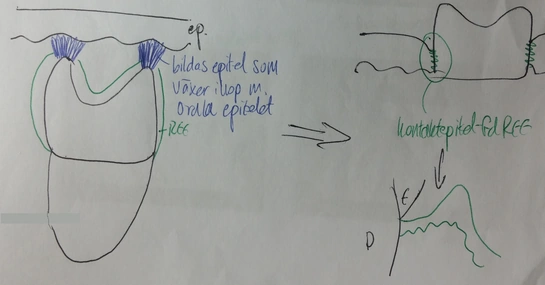 ep.
bildas epitel som
växer ihop m.
orala epitelet
REE
kontaktepitel-fd REE
E
D